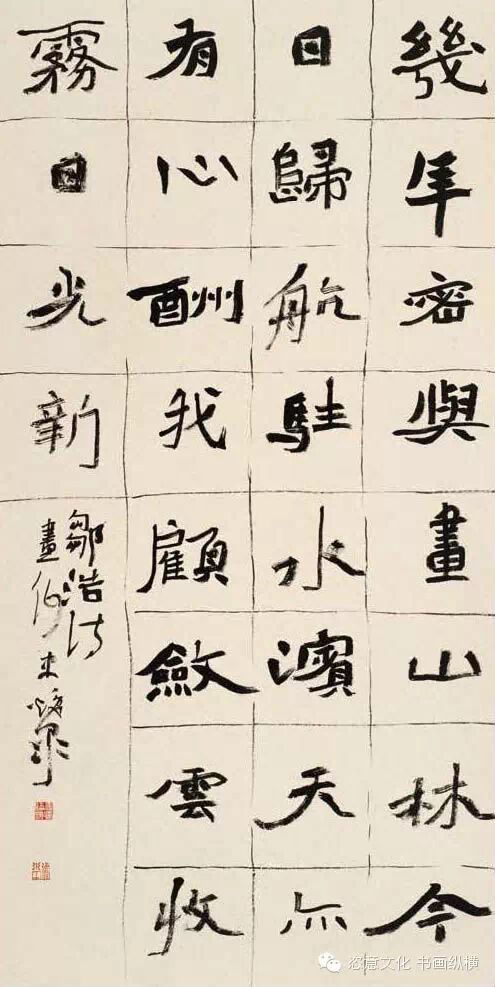 幾年密與畫山林今
日歸航駐水濱天亦
有心酬我顧斂雲收
霧日光新
鄒浩詩
畫
恣意文化 书画纵横